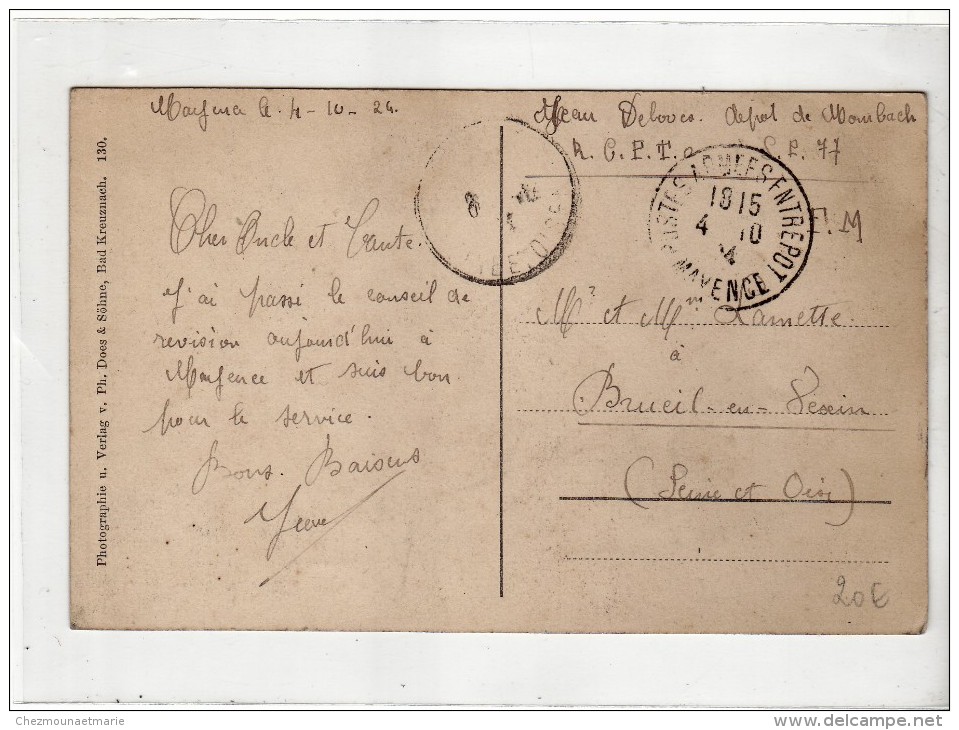 Mayence le 4-10-24.
Jean Deboves. dépot de Mombach
R. C. P. T. S. P. 77
POSTES ARMEES ENTREPOT
18 15
4 10
MAYENCE
F. M
8
OISE
Cher Oncle et Tante.
J'ai passé le conseil de
revision aujourd'hui à
Mayence et suis bon
pour le service.
Bons. Baisers
Jean
Mr et Mme Lamette.
à
Brueil-en-Vexin
(Seine et Oise)
20€
Photographie u. Verlag v. Ph. Does & Söhne, Bad Kreuznach. 130.
Chezmounaetmarie
www.delcampe.net